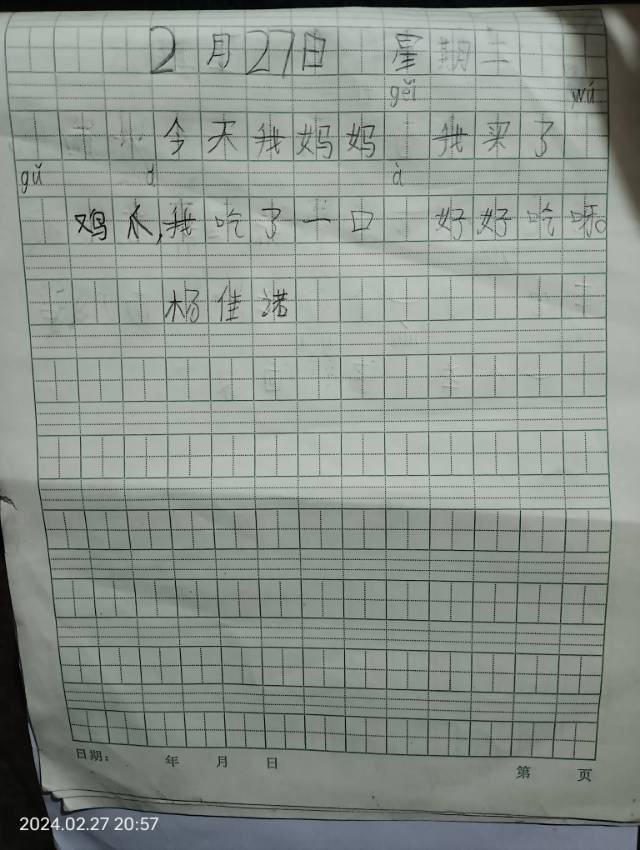 2月27日 星期二
gěi wú
今天我妈妈 我买了
gǔ d à
鸡爪,我吃了一口 好好吃呀。
杨佳诺
日期: 年 月 日 第 页
2024.02.27 20:57